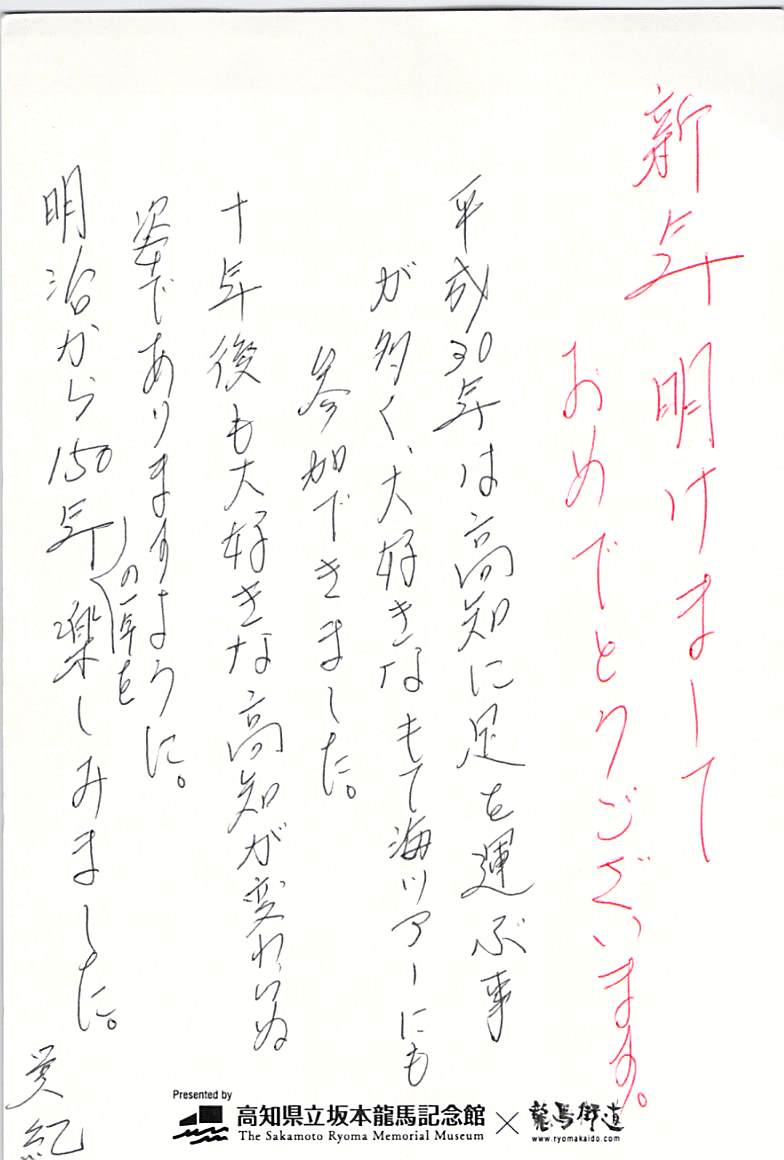 新年明けまして
おめでとうございます。
平成30年は高知に足を運ぶ事
が多く、大好きなもて海ツアーにも
参加できました。
十年後も大好きな高知が変わいぬ
姿でありますように。
明治から150年の一年を楽しみました。
美紀
Presented by
高知県立坂本龍馬記念館 × 龍馬街道
The Sakamoto Ryoma Memorial Museum
www.ryomakaido.com